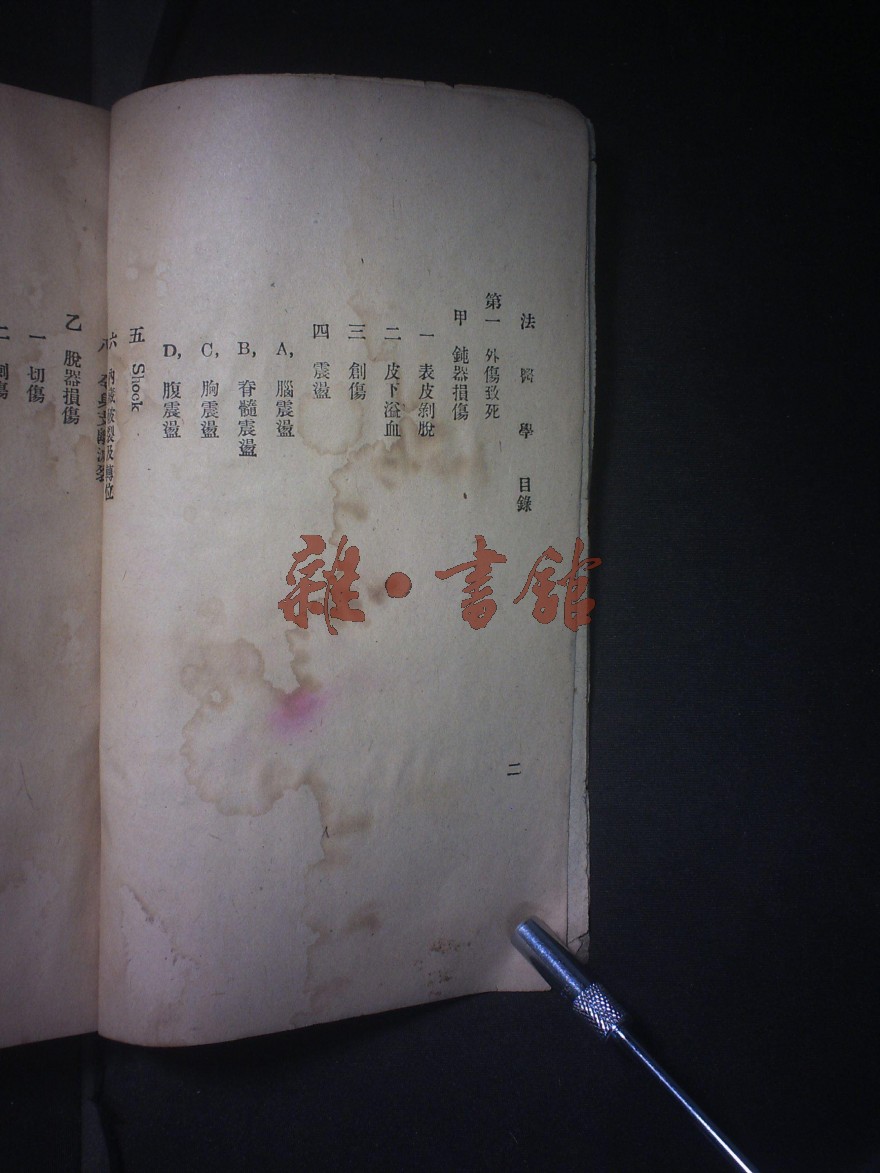 法醫學 目錄
二
第一 外傷致死
甲 鈍器損傷
一 表皮剝脫
二 皮下溢血
三 創傷
四 震盪
A, 腦震盪
B, 脊髓震盪
C, 胸震盪
D, 腹震盪
五 Shock
六 內臟破裂及轉位
乙 脫器損傷
一 切傷
二
雜·書館